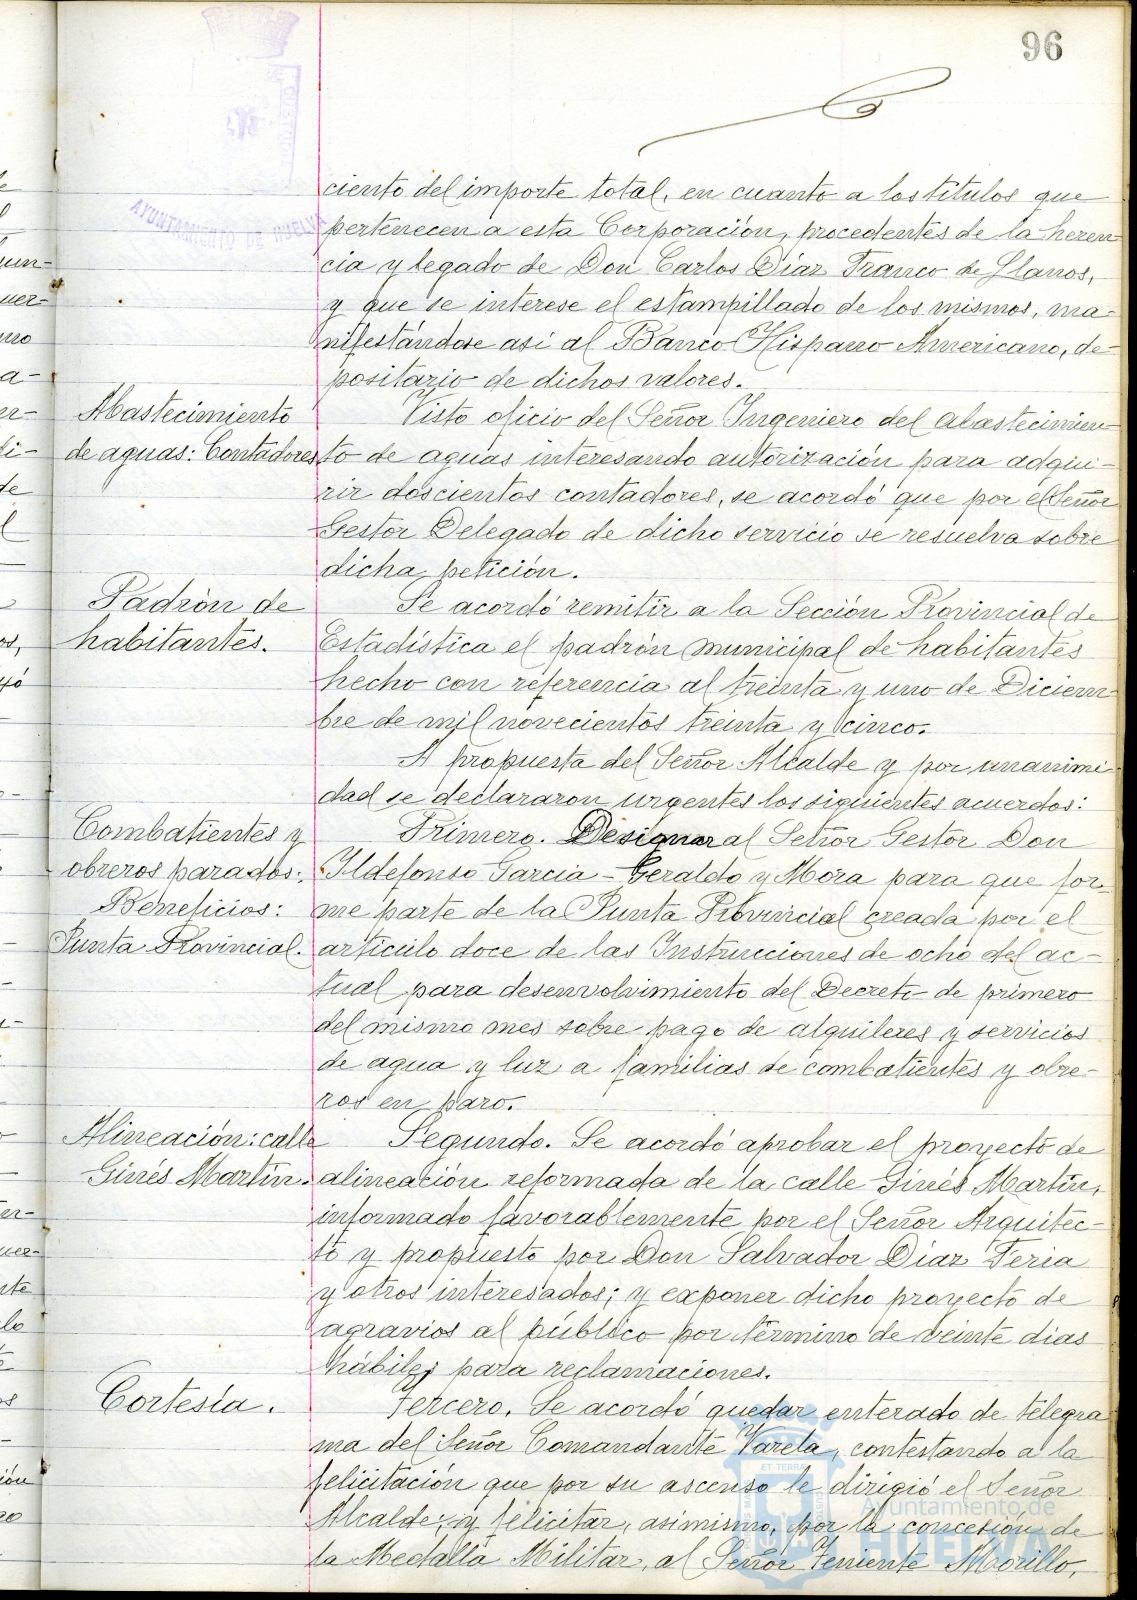 96
AYUNTAMIENTO DE HUELVA
ciento del importe total, en cuanto a los títulos que
pertenecen a esta Corporación, procedentes de la heren-
cia y legado de Don Carlos Díaz Franco de Llanos,
y que se interese el estampillado de los mismos, ma-
nifestándose así al Banco Hispano Americano, de-
positario de dichos valores.
Abastecimiento
de aguas: Contadores
Visto oficio del Señor Ingeniero del abastecimien-
to de aguas interesando autorización para adqui-
rir doscientos contadores, se acordó que por el Señor
Gestor Delegado de dicho servicio se resuelva sobre
dicha petición.
Padrón de
habitantes.
Se acordó remitir a la Sección Provincial de
Estadística el padrón municipal de habitantes
hecho con referencia al treinta y uno de Diciem-
bre de mil novecientos treinta y cinco.
A propuesta del Señor Alcalde y por unanimi-
dad se declararon urgentes los siguientes acuerdos:
Combatientes y
obreros parados:
Beneficios:
Junta Provincial.
Primero. Designar al Señor Gestor Don
Ildefonso García-Geraldo y Mora para que for-
me parte de la Junta Provincial creada por el
artículo doce de las Instrucciones de ocho del ac-
tual para desenvolvimiento del Decreto de primero
del mismo mes sobre pago de alquileres y servicios
de agua y luz a familias de combatientes y obre-
ros en paro.
Alineación: calle
Ginés Martín.
Segundo. Se acordó aprobar el proyecto de
alineación reformada de la calle Ginés Martín,
informado favorablemente por el Señor Arquitec-
to y propuesto por Don Salvador Díaz Feria
y otros interesados; y exponer dicho proyecto de
agravios al público por término de veinte días
hábiles para reclamaciones.
Cortesía.
Tercero. Se acordó quedar enterado de telegra
ma del Señor Comandante Varela, contestando a la
felicitación que por su ascenso le dirigió el Señor
Alcalde; y felicitar, asimismo, por la concesión de
la Medalla Militar, al Señor Teniente Morillo,
ET TERRA
Ayuntamiento de
HUELVA